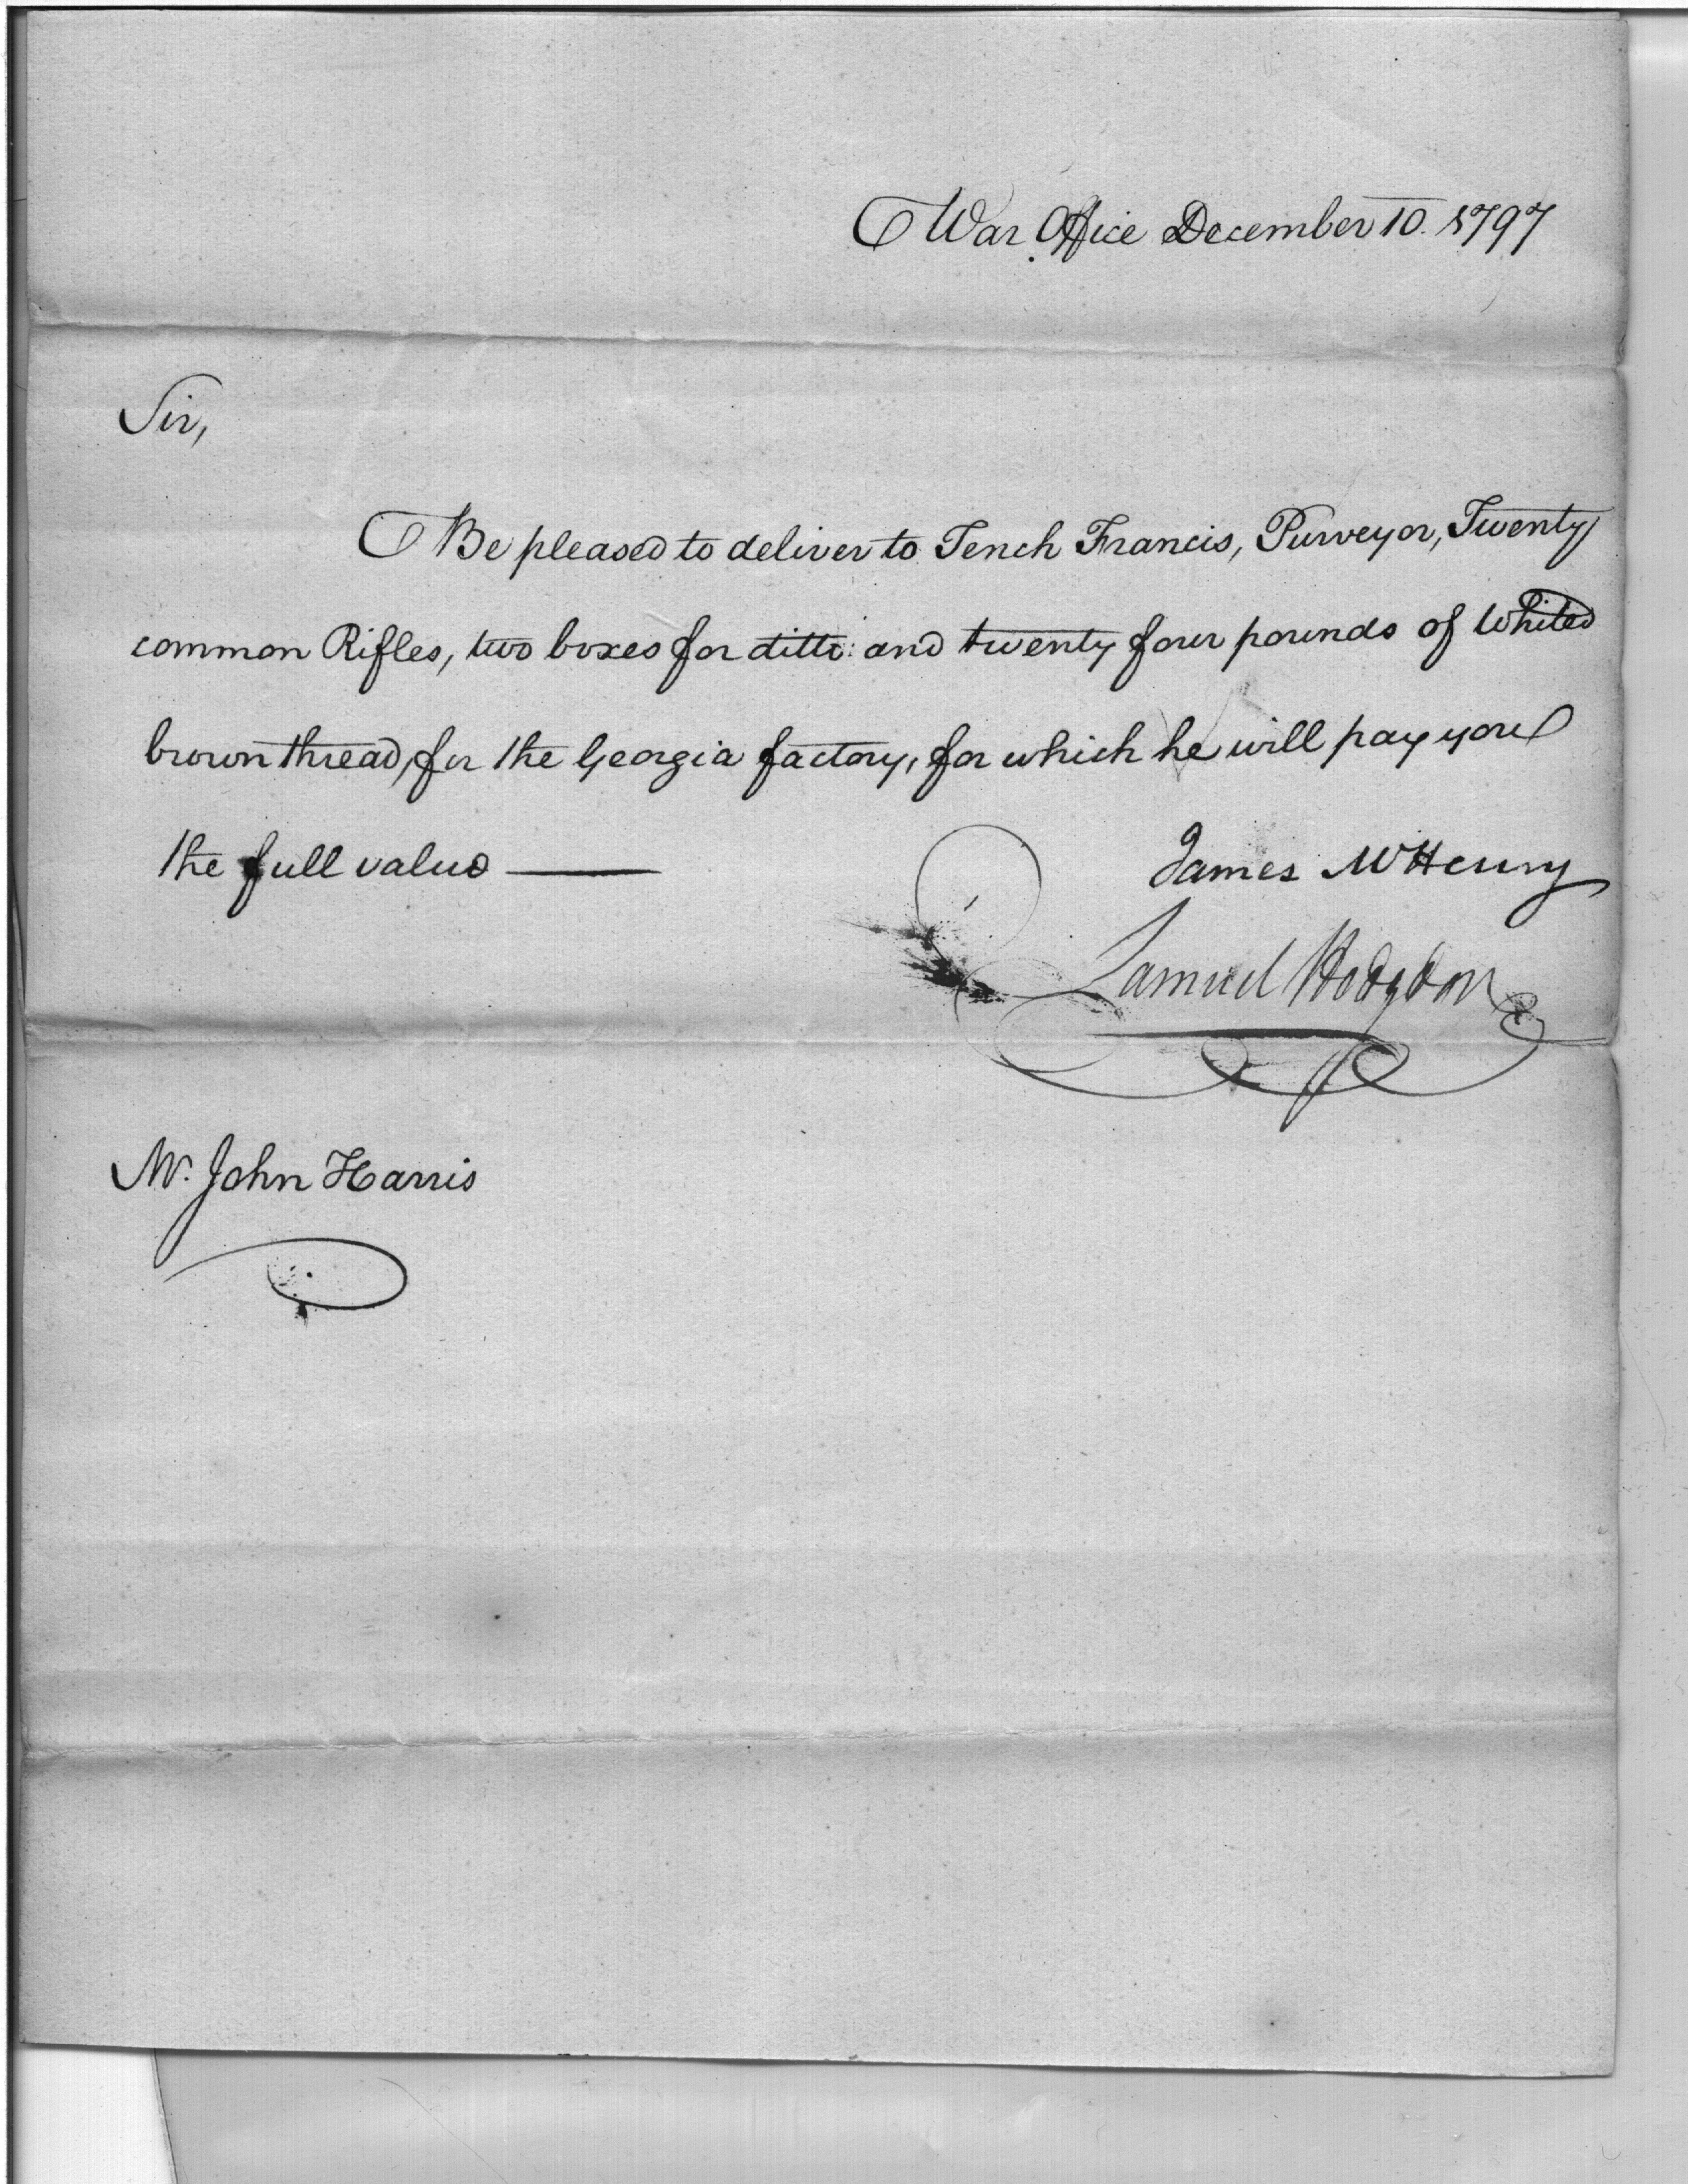 War Office December 10. 1797
Sir,
Be pleased to deliver to Tench Francis, Purveyor, Twenty
common Rifles, two boxes for ditto: and twenty four pounds of Whited
brown thread, for the Georgia factory, for which he will pay you
the full value
James McHenry
Samuel Hodgdon
Mr. John Harris